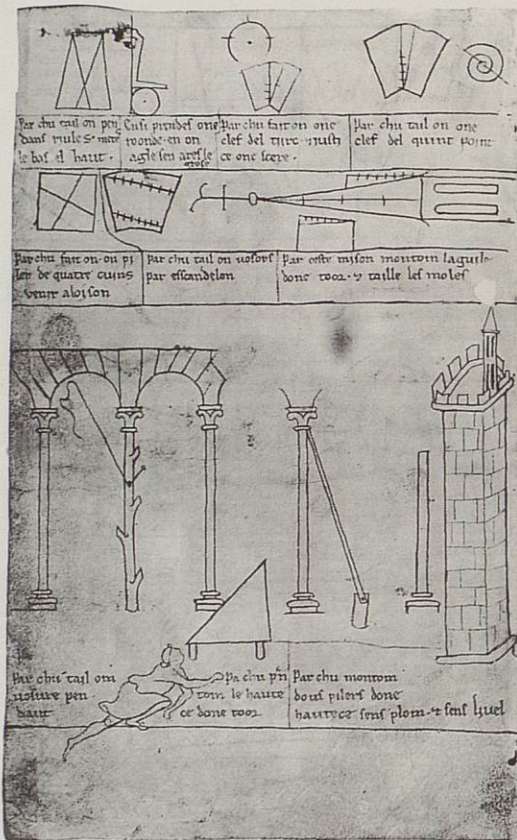 Par chu tail on pen
dans riule s· mete
le bas el haut ·
Ensi prendes one
roonde · en on
agle sen ares le
grose
Par chu fait on one
clef del tirc · iusti
ce one scere ·
Par chu tail on one
clef del quint point
Par chu fait on · on pi
ler de quatre cuins
venir aloison
Par chu tail on vosors
par esscandelon
Par ceste raison montom laguile
done toor · ⁊ taille les moles
Par chu tail om
vosure pen
dant
Pa chu pʼn
tom le haute
ce done toor
Par chu montom
dous pilers done
hautece sens plom · ⁊ sens livel